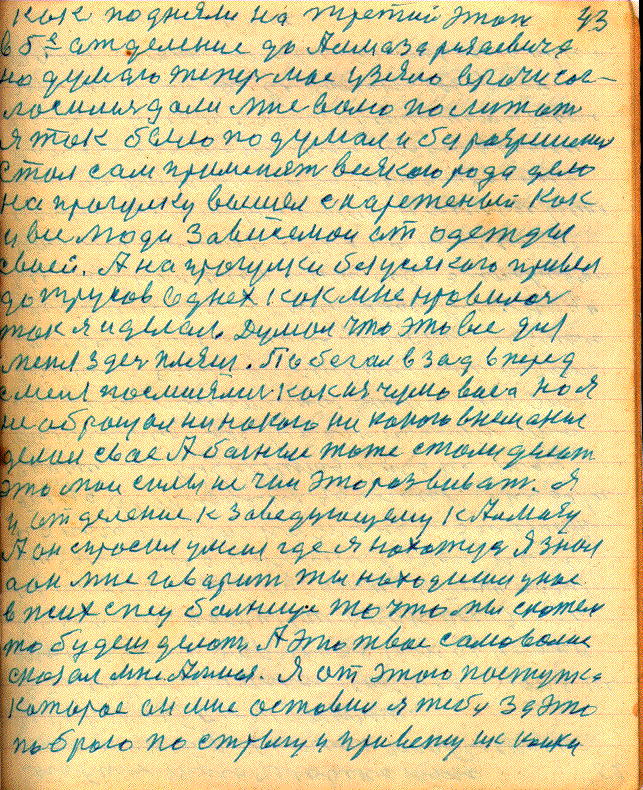 как подняли на третий этаж 43
в 5е отделение до Алмаза
но думаю теперь мое взяло врачи сог-
ласились дали мне волю полижат
я так было подумал и без разрешения
стал сам применят всякого рода дело
на прогулку вышел снареженый как
и все люди зависемои от одежды
своей. А на прогулки безусякого привел
до трусов однех как мне нравилось
так я и делал. Думал что это все для
меня здеч пляш. Побегал взад вперед
смея посмиялис какия чумовова но я
не оброщал ни на кого ни какого внеманья
делал свое А болные тоже стали делат
это мои силы не чем это розвиват. Я
и отделение к заведующему к Алмазу
А он спросил умея где я нахожус Я знал
а он мне гаварит ты находишся унас
в псих спец болнице то что мы скажем
то будеш делоть А это твое самоволие
сказал мне Алмаз. Я от этого поступка
которое он мне оставил я тебу за это
побрею постригу и привежу к койки